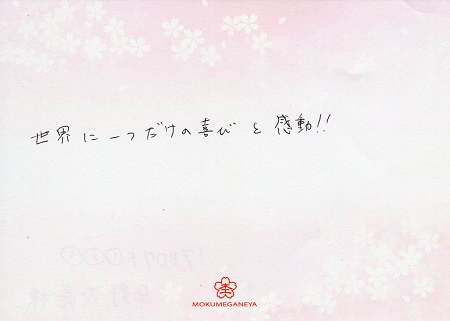 世界に一つだけの喜びと感動!!
MOKUMEGANEYA